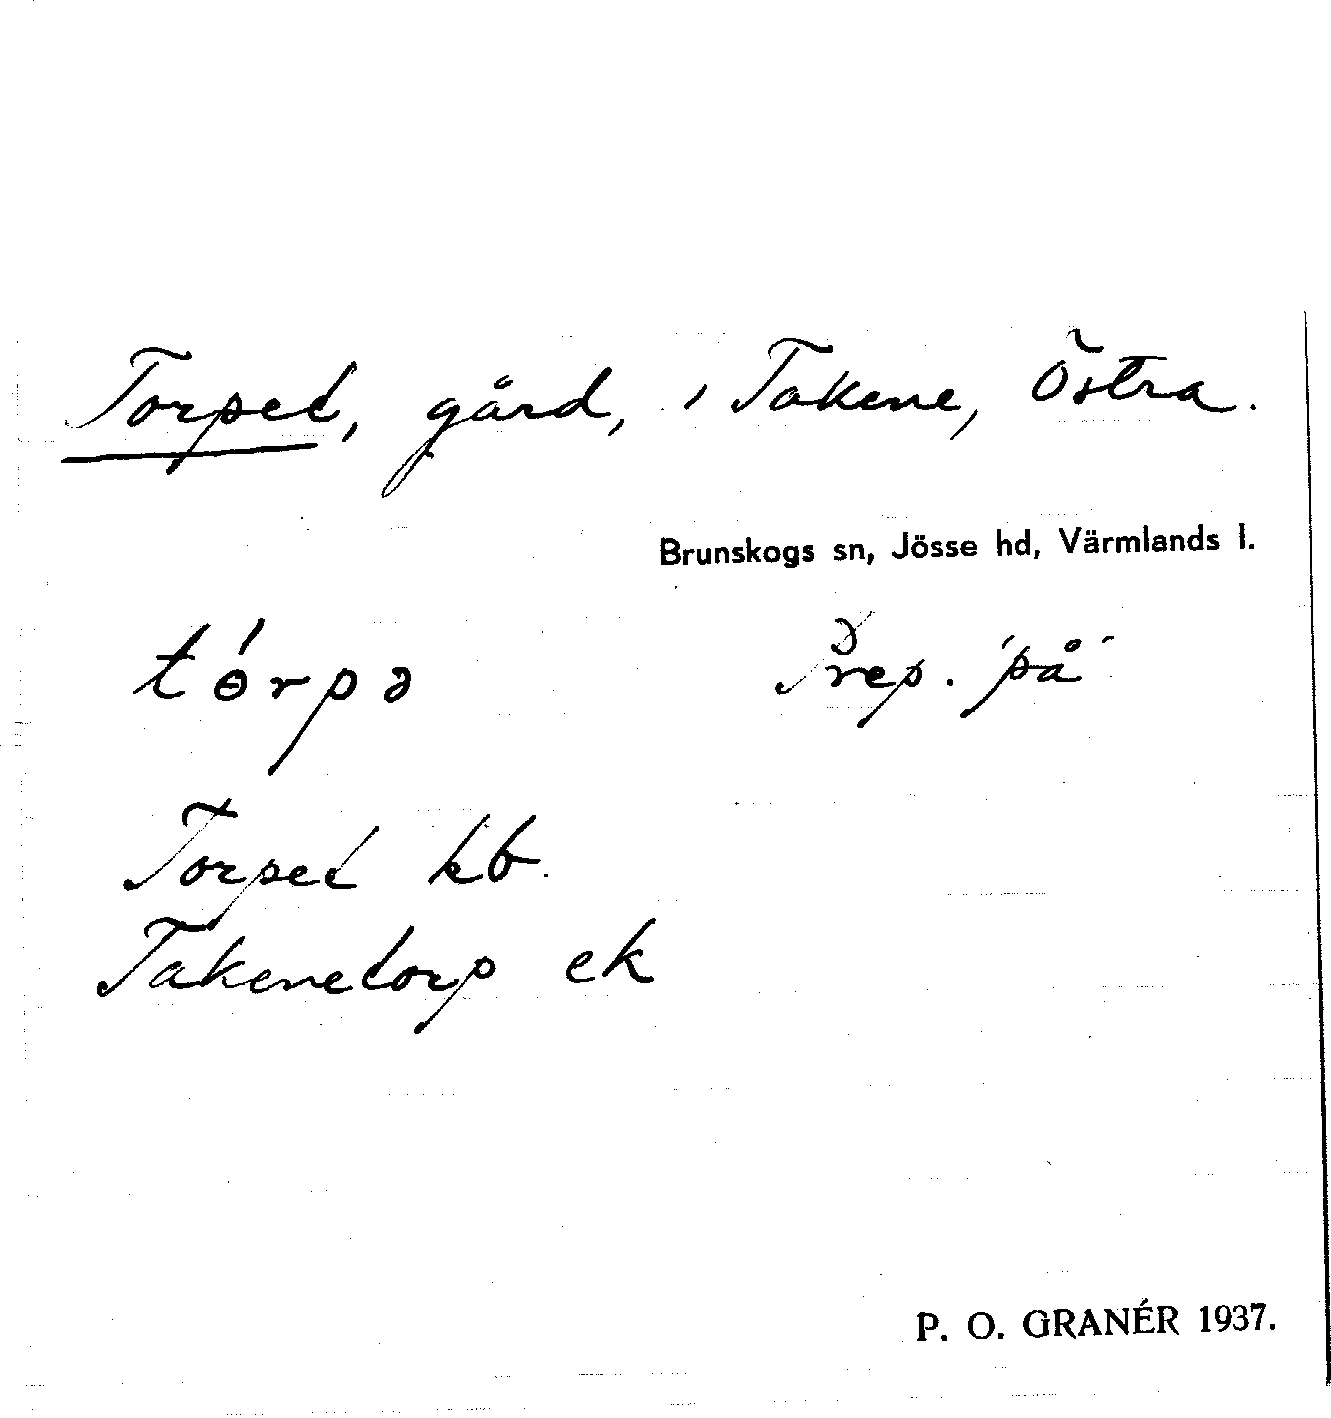 Torpet, gård, i Takene, Östra.
Brunskogs sn, Jösse hd, Värmlands l.
tɵ́rpə Prep. "på"
Torpet kb.
Takenetorp ek
P. O. GRANÉR 1937.